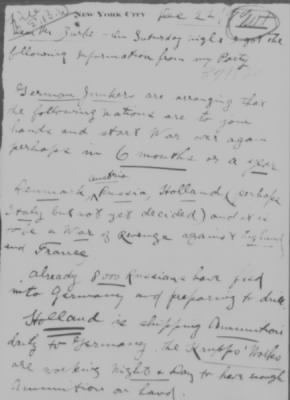 NEW YORK CITY
Dear Mr. Burke - On Saturday night I got the
following information from my Party
German Junkers are arranging that
the following nations are to join
hands and start War over again
perhaps in 6 months or a year
Austria
Denmark, Russia, Holland (perhaps
Italy but not yet decided) and it is
to be a War of Revenge against England
and France
already 8000 Russians have fled
into Germany and preparing to drill
Holland is shipping Ammunition
daily to Germany. The Krupps' Works
are working Night & Day to have enough
Ammunition on hand.